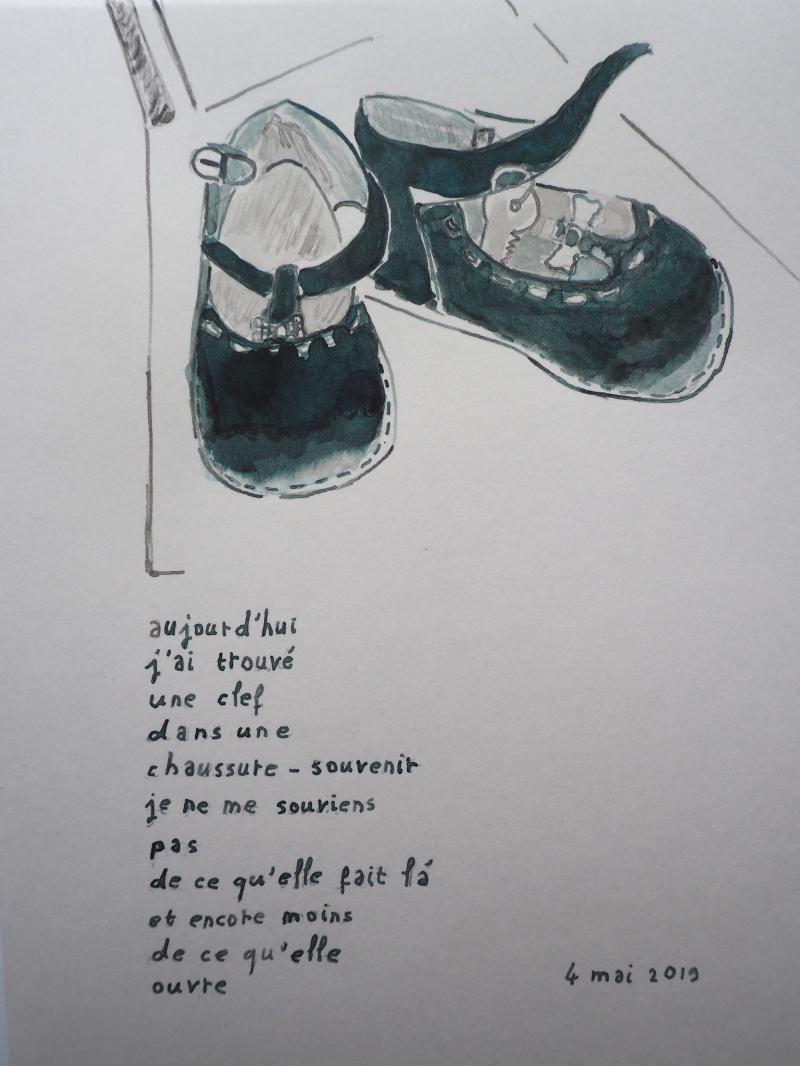 aujourd'hui
j'ai trouvé
une clef
dans une
chaussure - souvenir
je ne me souviens
pas
de ce qu'elle fait là
et encore moins
de ce qu'elle
ouvre
4 mai 2019